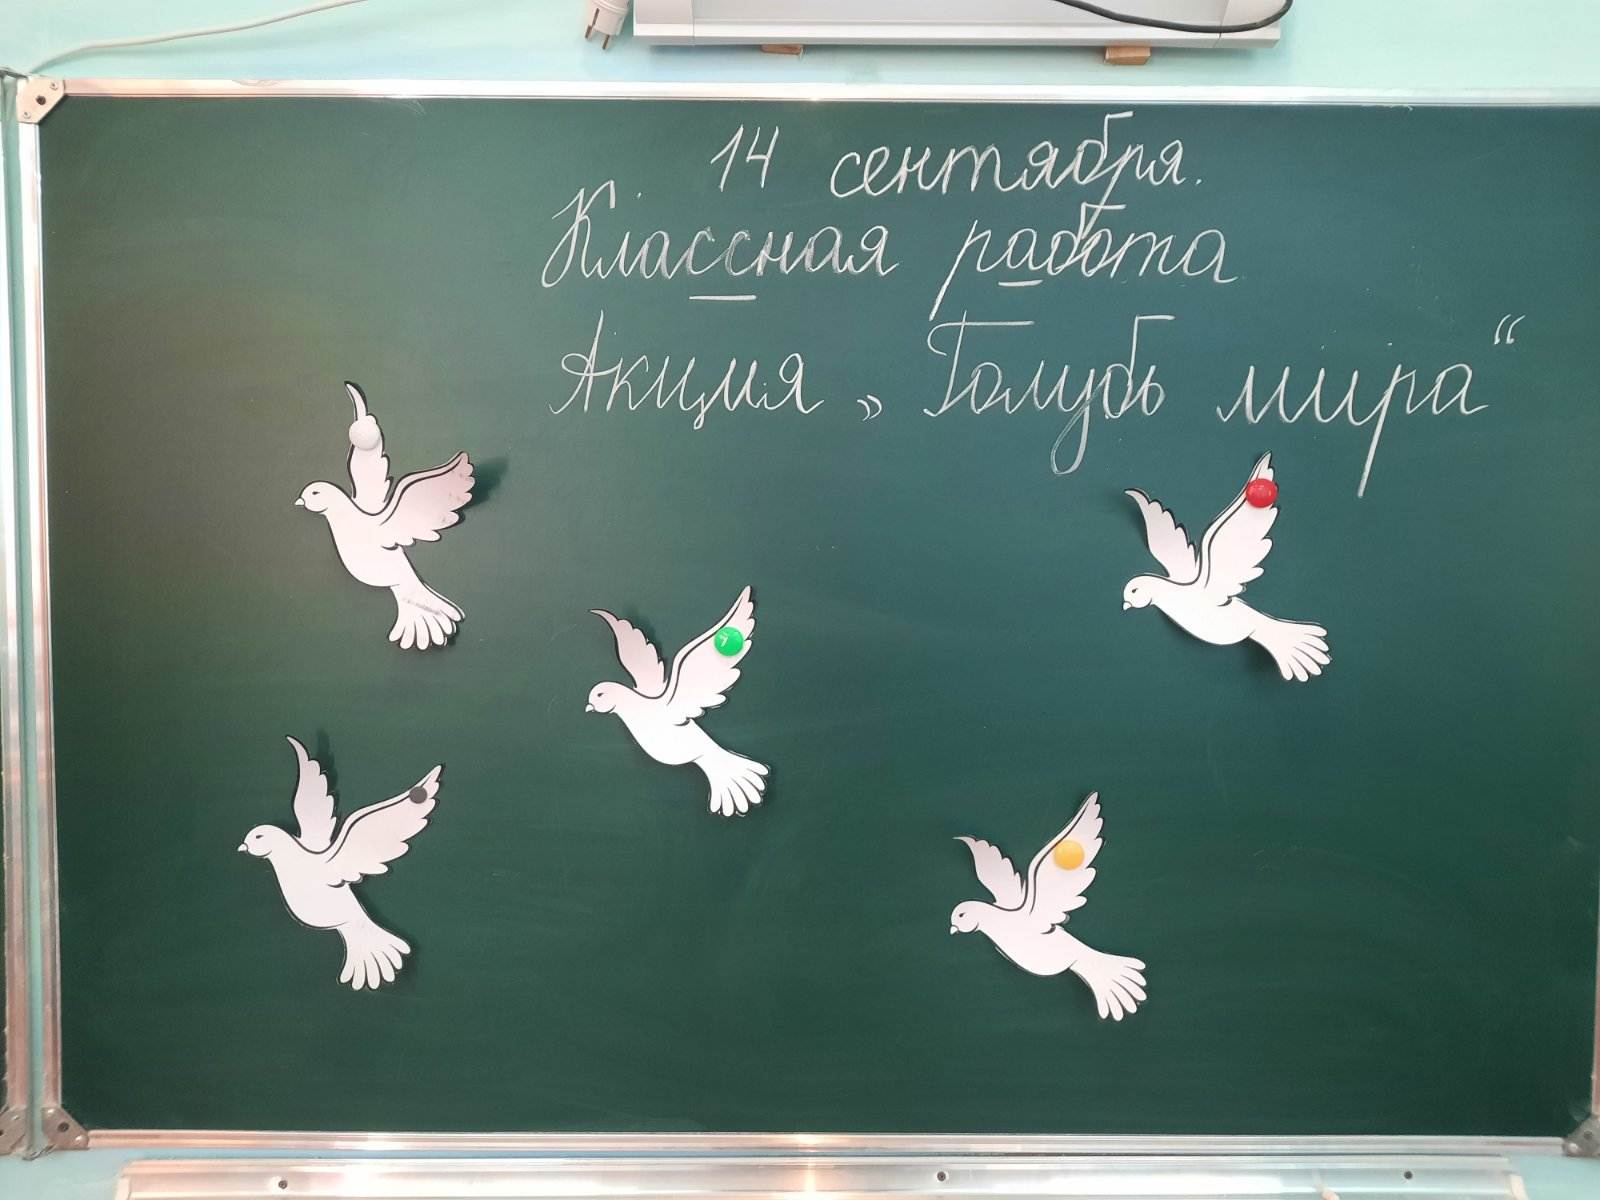 14 сентября.
Классная работа
Акция „Голубь мира“